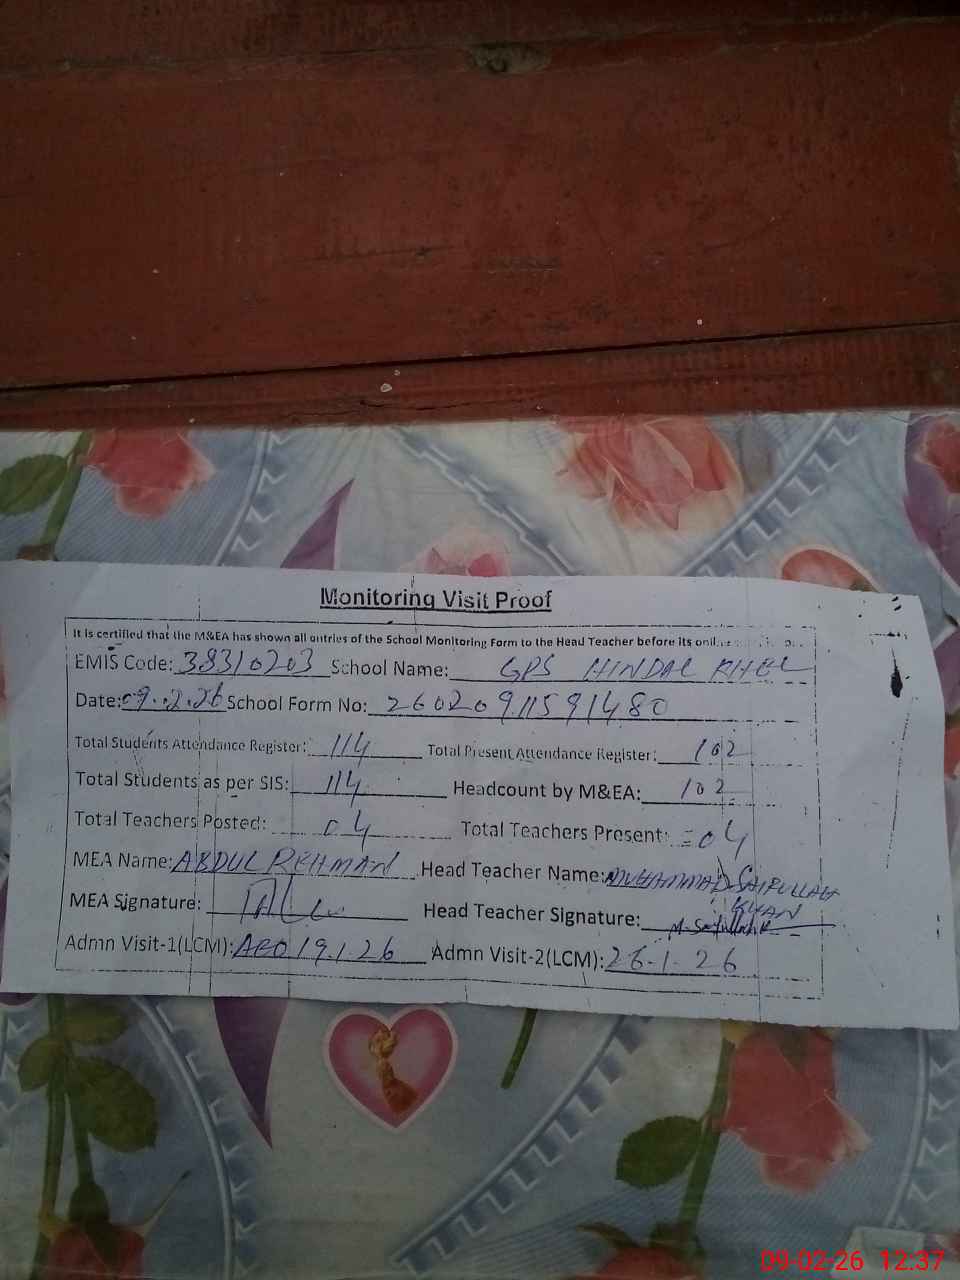 Monitoring Visit Proof
It is certified that the M&EA has shown all entries of the School Monitoring Form to the Head Teacher before its
EMIS Code: 38310203 School Name: GPS HINDAL KHEL
Date: 09.2.26 School Form No: 26020911591480
Total Students Attendance Register: 114 Total Present Attendance Register: 102
Total Students as per SIS: 114 Headcount by M&EA: 102
Total Teachers Posted: 04 Total Teachers Present: =04
MEA Name: ABDUL REHMAN Head Teacher Name: MUHAMMAD SAIFULLAH KHAN
MEA Signature: Head Teacher Signature: M. Saifullah K
Admn Visit-1(LCM): AEO 19.1.26 Admn Visit-2(LCM): 26-1-26
09-02-26 12:37